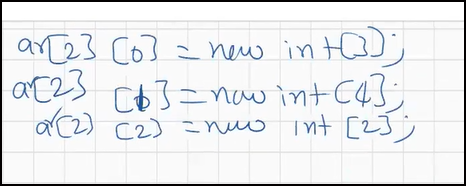 ar[2] [0] = new int[3];
ar[2] [1] = new int[4];
ar[2] [2] = new int[2];